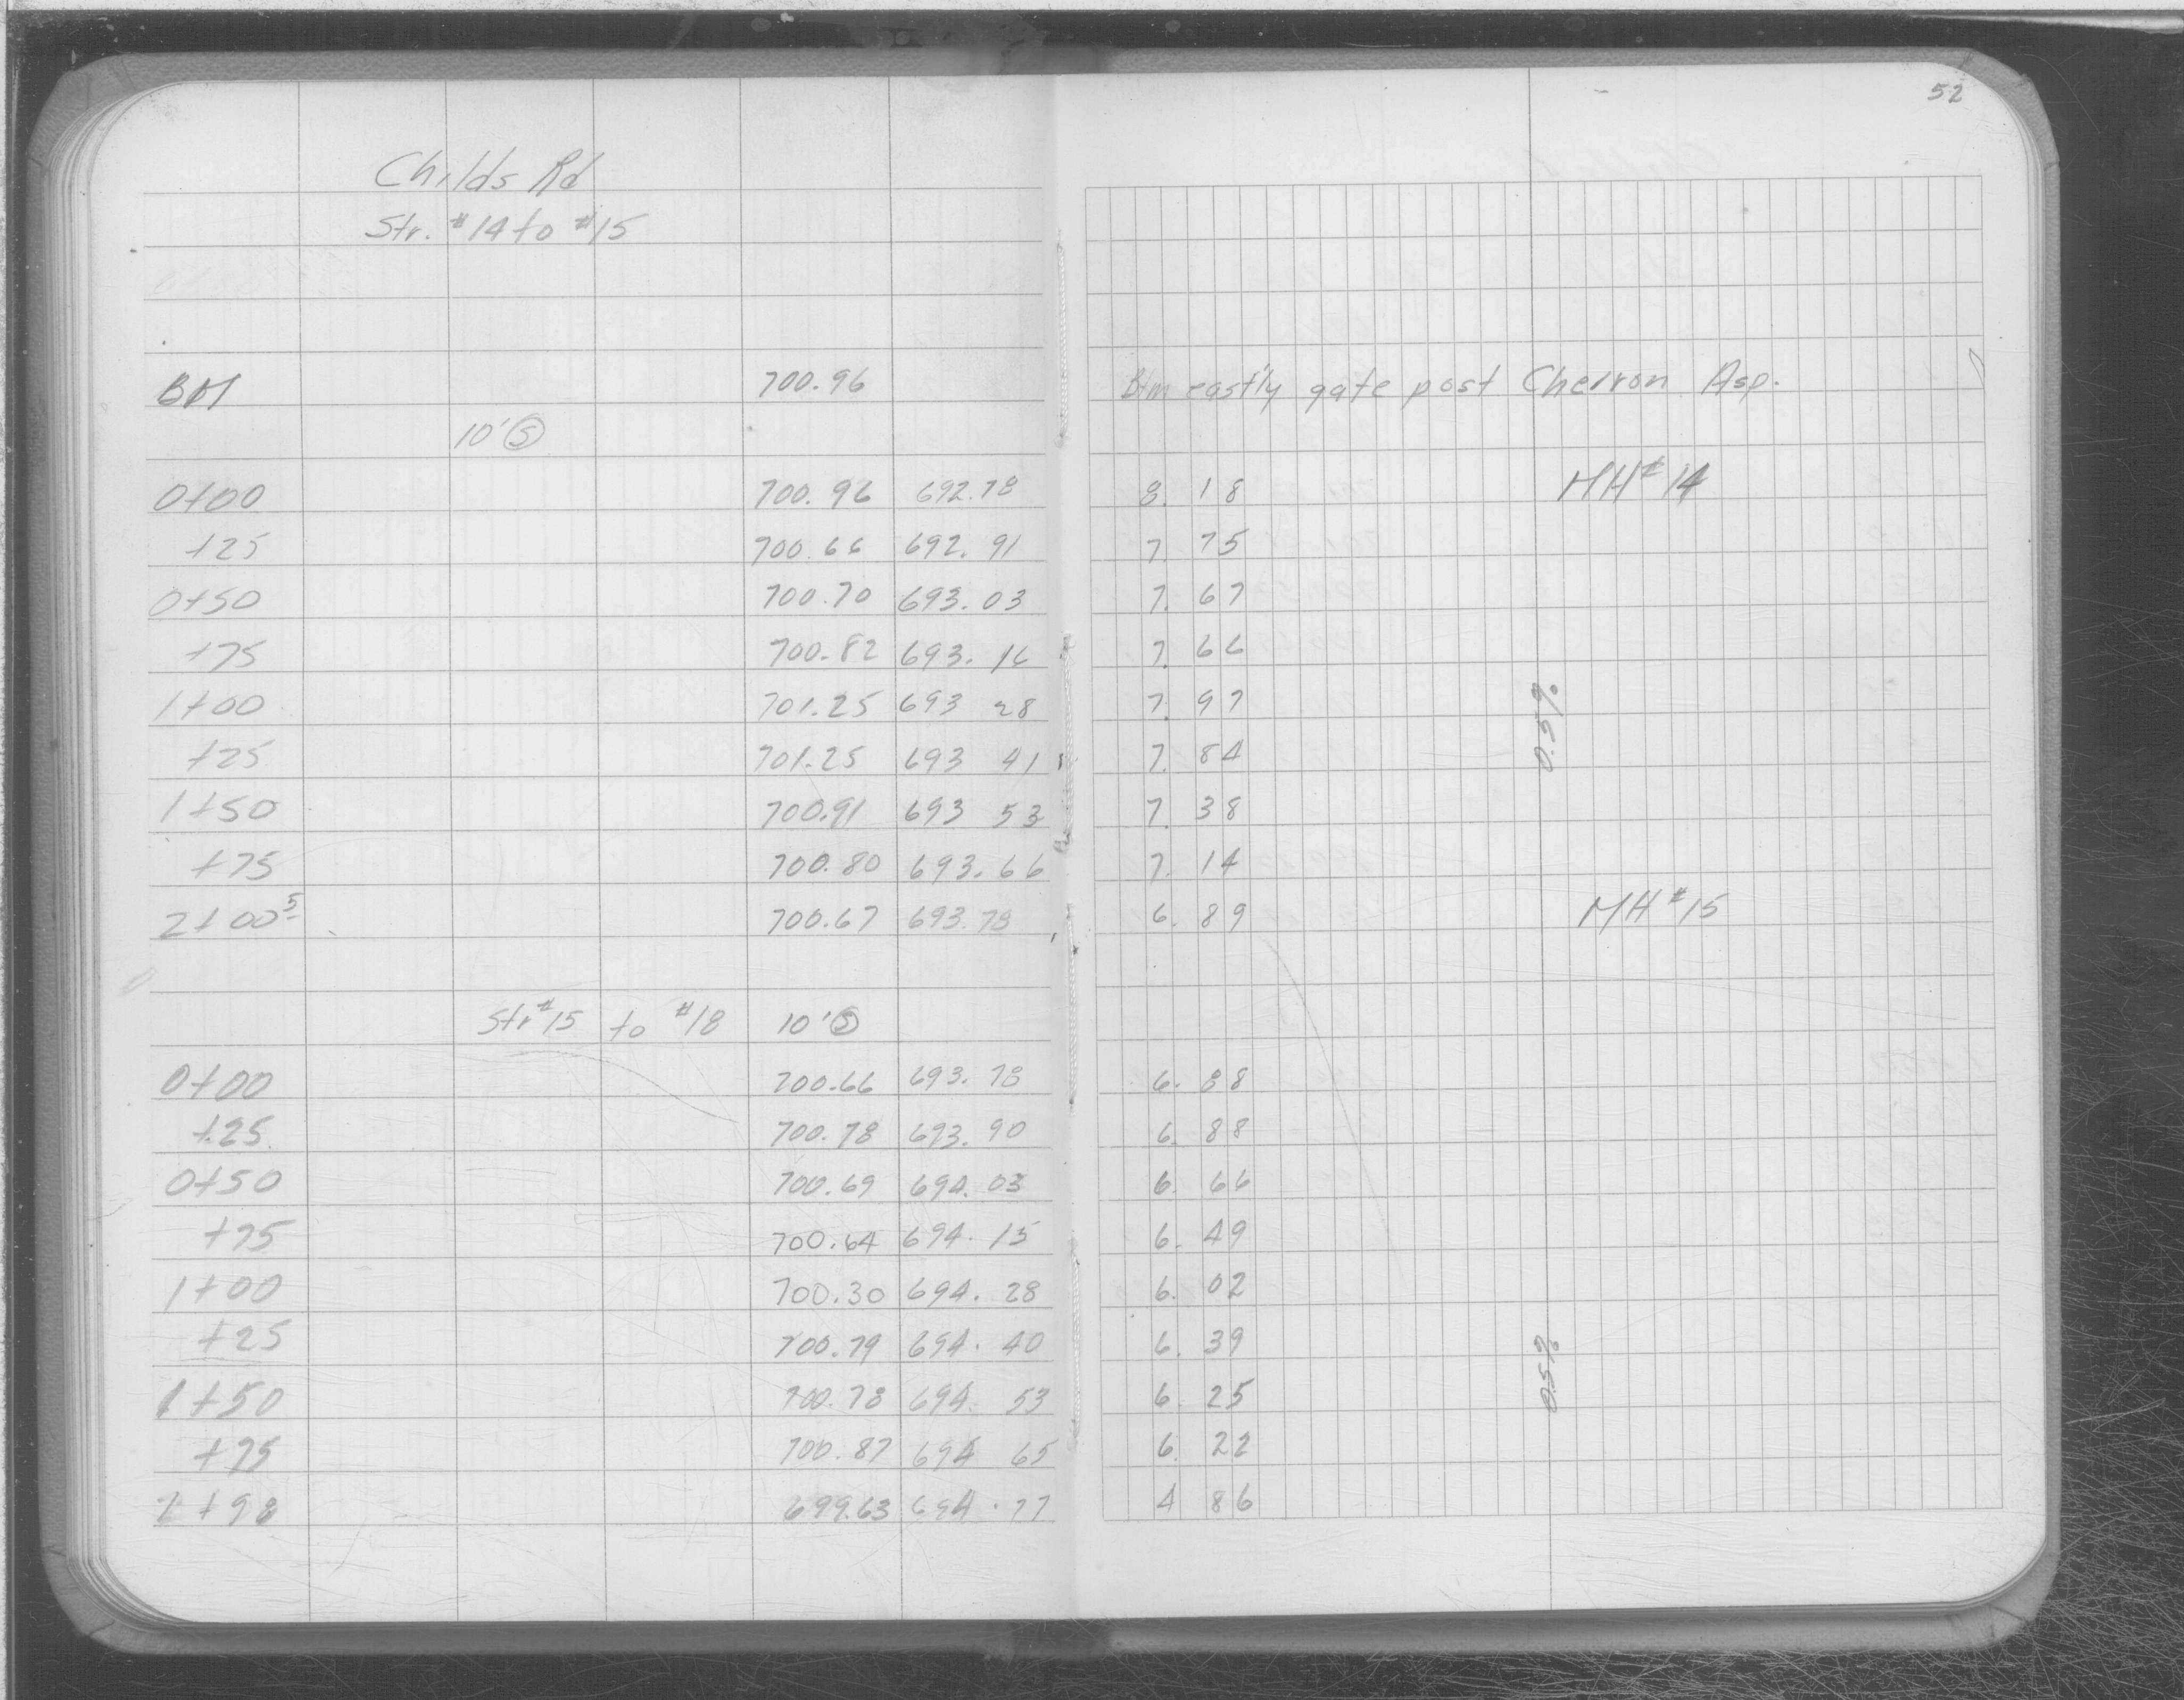 52
Childs Rd
Str. #14 to #15
BM 700.96 Btm east'ly gate post Chevron Asp.
10' S
0+00 700.96 692.78 8.18 MH #14
+25 700.66 692.91 7.75
0+50 700.70 693.03 7.67
+75 700.82 693.16 7.66
1+00 701.25 693 28 7.97
+25 701.25 693 41 7.84
0.5%
1+50 700.91 693 53 7.38
+75 700.80 693.66 7.14
2+00⁵ 700.67 693.78 6.89 MH #15
Str #15 to #18 10' S
0+00 700.66 693.78 6.88
+25 700.78 693.90 6.88
0+50 700.69 694.03 6.66
+75 700.64 694.15 6.49
1+00 700.30 694.28 6.02
+25 700.79 694.40 6.39
0.5%
1+50 700.78 694.53 6.25
+75 700.87 694 65 6.22
+98 699.63 694.77 4 86